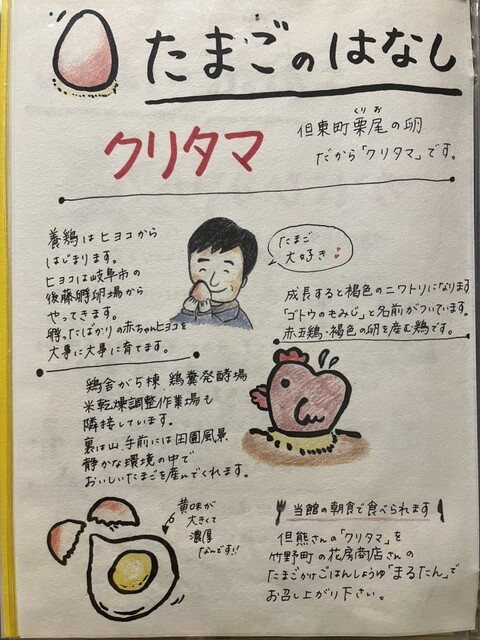 たまごのはなし
クリタマ
くりお
但東町栗尾の卵
だから「クリタマ」です。
養鶏はヒヨコから
はじまります。
ヒヨコは岐阜市の
後藤孵卵場から
やってきます。
孵ったばかりの赤ちゃんヒヨコを
大事に大事に育てます。
たまご
大好き
成長すると褐色のニワトリになります
「ゴトウのもみじ」と名前がついています。
赤玉鶏・褐色の卵を産む鶏です。
鶏舎が5棟、鶏糞発酵場
米乾燥調整作業場も
隣接しています。
裏は山、手前には田園風景
静かな環境の中で
おいしいたまごを産んでくれます。
黄味が
大きくて
濃厚
なんです!!
当館の朝食で食べられます
但熊さんの「クリタマ」を
竹野町の花房商店さんの
たまごかけごはんしょうゆ「まるたん」で
お召し上がり下さい。